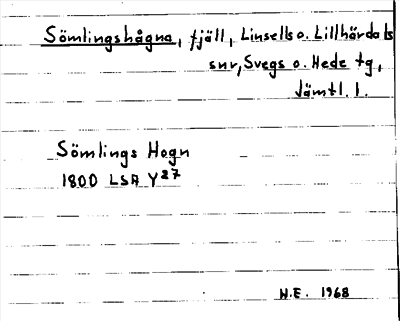 Sömlingshågna, fjäll, Linsells o. Lillhärdals
snr, Svegs o. Hede tg,
Jämtl. l.
Sömlings Hogn
1800 LSA Y27
H.E. 1968